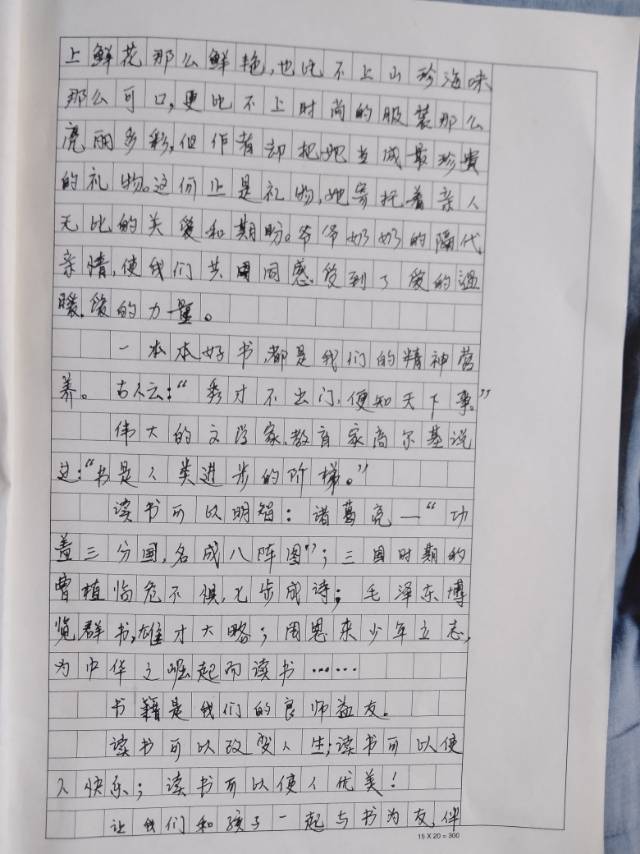 上鲜花那么鲜艳,也比不上山珍海味
那么可口,更比不上时尚的服装那么
亮丽多彩,但作者却把她当成最珍贵
的礼物。这何止是礼物,她寄托着亲人
无比的关爱和期盼。爷爷奶奶的隔代
亲情,使我们共同感受到了爱的温
暖,爱的力量。
一本本好书,都是我们的精神营
养。古人云:“秀才不出门,便知天下事。”
伟大的文学家,教育家高尔基说
过:“书是人类进步的阶梯。”
读书可以明智:诸葛亮—“功
盖三分国,名成八阵图”;三国时期的
曹植临危不惧,七步成诗;毛泽东博
览群书,雄才大略;周恩来少年立志,
为中华之崛起而读书……
书籍是我们的良师益友。
读书可以改变人生;读书可以使
人快乐;读书可以使人优美!
让我们和孩子一起与书为友,伴
15 X 20 = 300